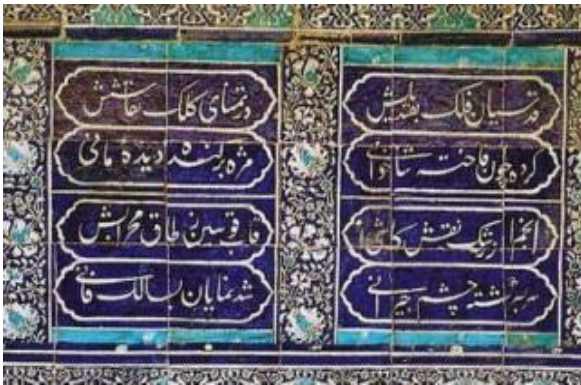 قدسیان فلک بقندیلش
کرده چون فاخته ثناخوانی
انجم از رنگ نقش کاشی
سر بسر گشته چشم حیرانی
در تماشای کلک نقاشش
مژه برکنده دیدهٔ مانی
قاب قوسین ز طاق محرابش
شد نمایان بسالک فانی